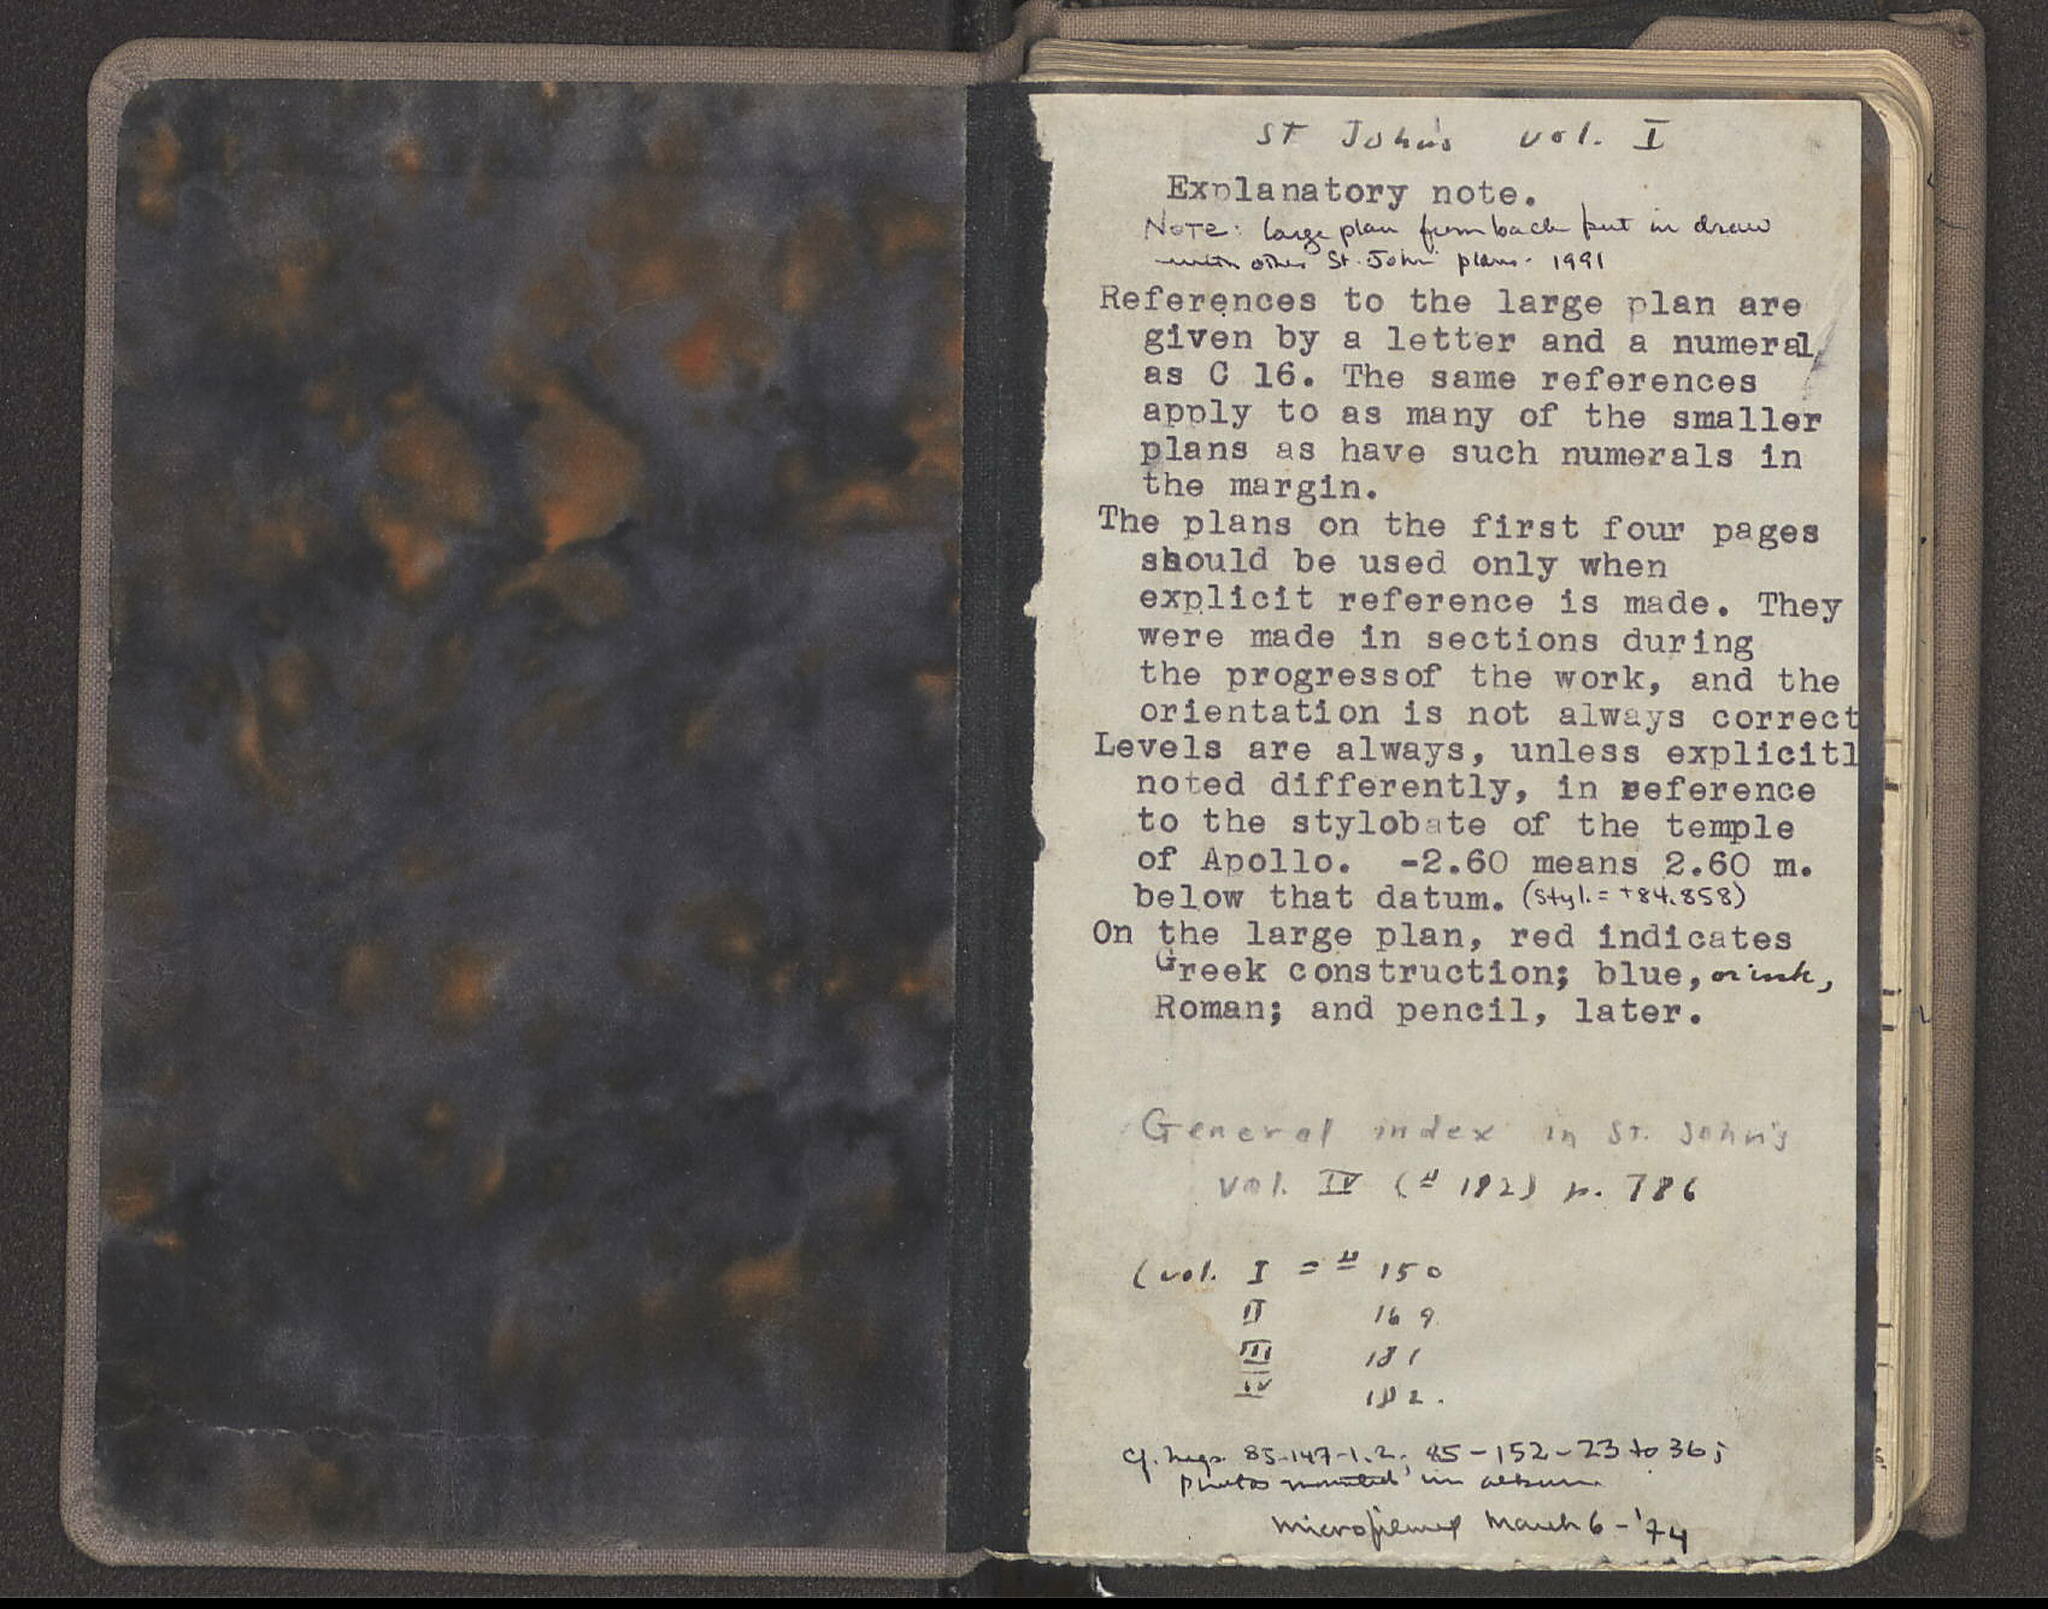 St John's vol. I
Explanatory note.
Note: large plan from back put in draw
with other St. John plans. 1991
References to the large plan are
given by a letter and a numeral,
as C 16. The same references
apply to as many of the smaller
plans as have such numerals in
the margin.
The plans on the first four pages
should be used only when
explicit reference is made. They
were made in sections during
the progressof the work, and the
orientation is not always correct
Levels are always, unless explicitl
noted differently, in reference
to the stylobate of the temple
of Apollo. -2.60 means 2.60 m.
below that datum. (Styl. = +84.858)
On the large plan, red indicates
Greek construction; blue, or ink,
Roman; and pencil, later.
General index in St. John's
vol. IV (# 182) p. 786
(vol. I = # 150
II 169
III 181
IV 182.
cf. negs. 85-147-1, 2; 85-152-23 to 36;
photos mounted in album
Microfilmed March 6-'74